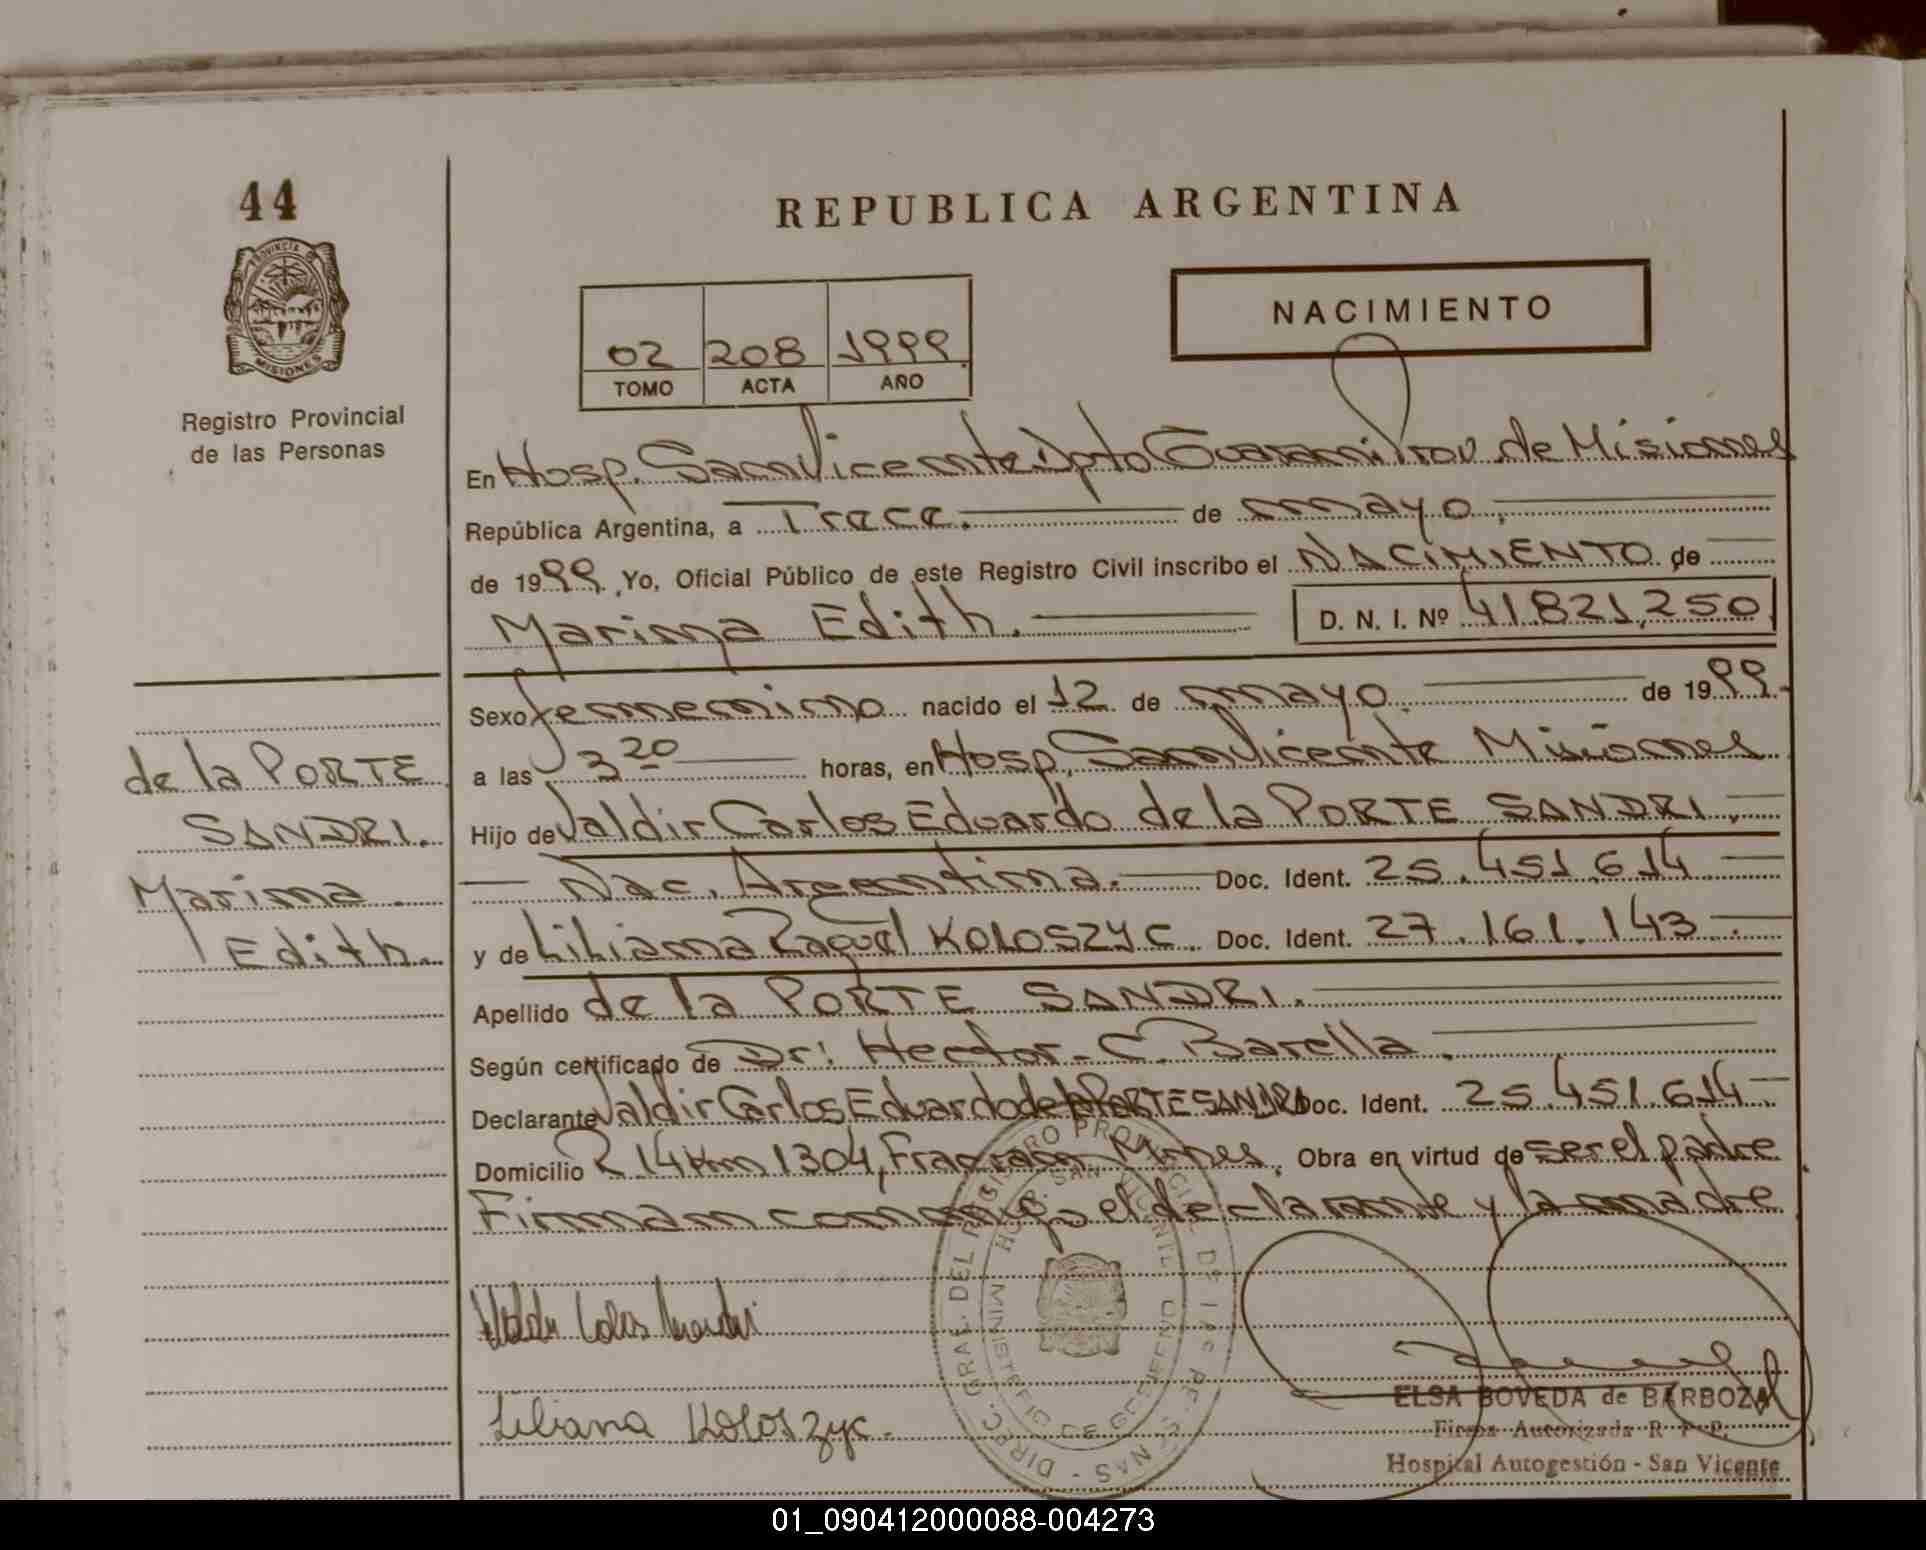 44
PROVINCIA
MISIONES
Registro Provincial
de las Personas
REPUBLICA ARGENTINA
02 208 1999
TOMO ACTA AÑO
NACIMIENTO
En Hosp. San Vicente Dpto Guarani Prov. de Misiones
República Argentina, a Trece. de mayo,
de 1999. Yo, Oficial Público de este Registro Civil inscribo el NACIMIENTO de
Marina Edith. D. N. I. Nº 41.821,250
Sexo femenino nacido el 12 de mayo. de 1999.
a las 3 20 horas, en Hosp. San Vicente Misiones
Hijo de Valdir Carlos Eduardo de la PORTE SANDRI,
Nac. Argentina. Doc. Ident. 25.451.614
y de Liliana Raquel KOLOSZYC. Doc. Ident. 27.161.143.
Apellido de la PORTE SANDRI.
Según certificado de Dr: Hector C. Barella.
Declarante Valdir Carlos Eduardo de la PORTE SANDRI Doc. Ident. 25.451.614.
Domicilio R 14 Km 1304, Fracran Mnes. Obra en virtud de ser el padre
Firman conmigo el declarante y la madre
de la PORTE
SANDRI.
Marina
Edith.
Liliana Koloszyc.
ELSA BOVEDA de BARBOZA
Firma Autorizada R. P. P.
Hospital Autogestión - San Vicente
DIREC. GRAL. DEL REGISTRO PROVINCIAL DE LAS PERSONAS -
MINISTERIO DE GOBIERNO
HOSP. SAN VICENTE
01_090412000088-004273